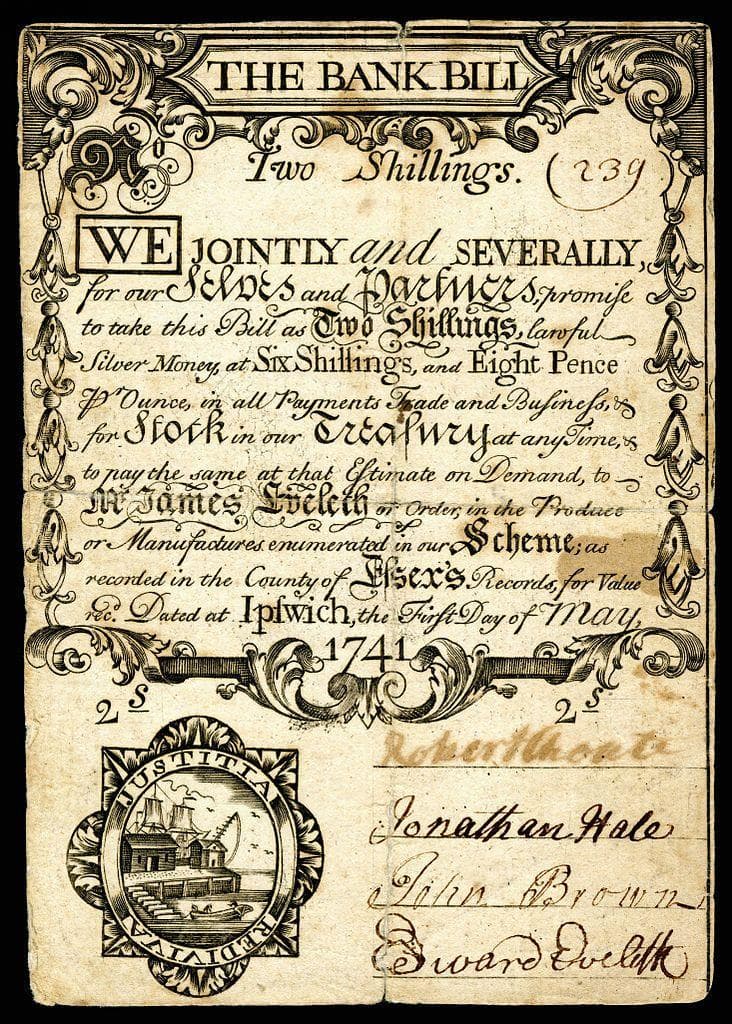 THE BANK BILL
No
Two Shillings. (239
WE JOINTLY and SEVERALLY,
for our Selves and Partners, promise
to take this Bill as Two Shillings, lawful
Silver Money, at Six Shillings, and Eight Pence
Pr Ounce, in all Payments Trade and Business, &
for Stock in our Treasury at any Time, &
to pay the same at that Estimate on Demand, to
Mr James Eveleth or Order, in the Produce
or Manufactures enumerated in our Scheme; as
recorded in the County of Essex's Records, for Value
recd. Dated at Ipswich, the First Day of May,
1741
2 S 2 S
Robert Choate
JUSTITIA
Jonathan Hale
John Brown
REDIVIVA
Edward Eveleth